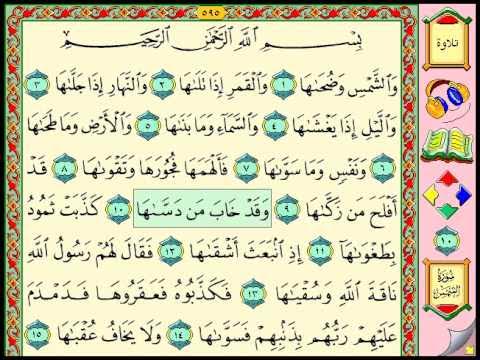 ٥٩٥
بِسْمِ اللَّهِ الرَّحْمَٰنِ الرَّحِيمِ
وَالشَّمْسِ وَضُحَىٰهَا ١ وَالْقَمَرِ إِذَا تَلَىٰهَا ٢ وَالنَّهَارِ إِذَا جَلَّىٰهَا ٣
وَالَّيْلِ إِذَا يَغْشَىٰهَا ٤ وَالسَّمَاءِ وَمَا بَنَىٰهَا ٥ وَالْأَرْضِ وَمَا طَحَىٰهَا
٦ وَنَفْسٍ وَمَا سَوَّىٰهَا ٧ فَأَلْهَمَهَا فُجُورَهَا وَتَقْوَىٰهَا ٨ قَدْ
أَفْلَحَ مَن زَكَّىٰهَا ٩ وَقَدْ خَابَ مَن دَسَّىٰهَا ١٠ كَذَّبَتْ ثَمُودُ
بِطَغْوَىٰهَا ١١ إِذِ انبَعَثَ أَشْقَىٰهَا ١٢ فَقَالَ لَهُمْ رَسُولُ اللَّهِ
نَاقَةَ اللَّهِ وَسُقْيَٰهَا ١٣ فَكَذَّبُوهُ فَعَقَرُوهَا فَدَمْدَمَ
عَلَيْهِمْ رَبُّهُم بِذَنبِهِمْ فَسَوَّىٰهَا ١٤ وَلَا يَخَافُ عُقْبَٰهَا ١٥
تلاوة
١٠
سورة
الشمس